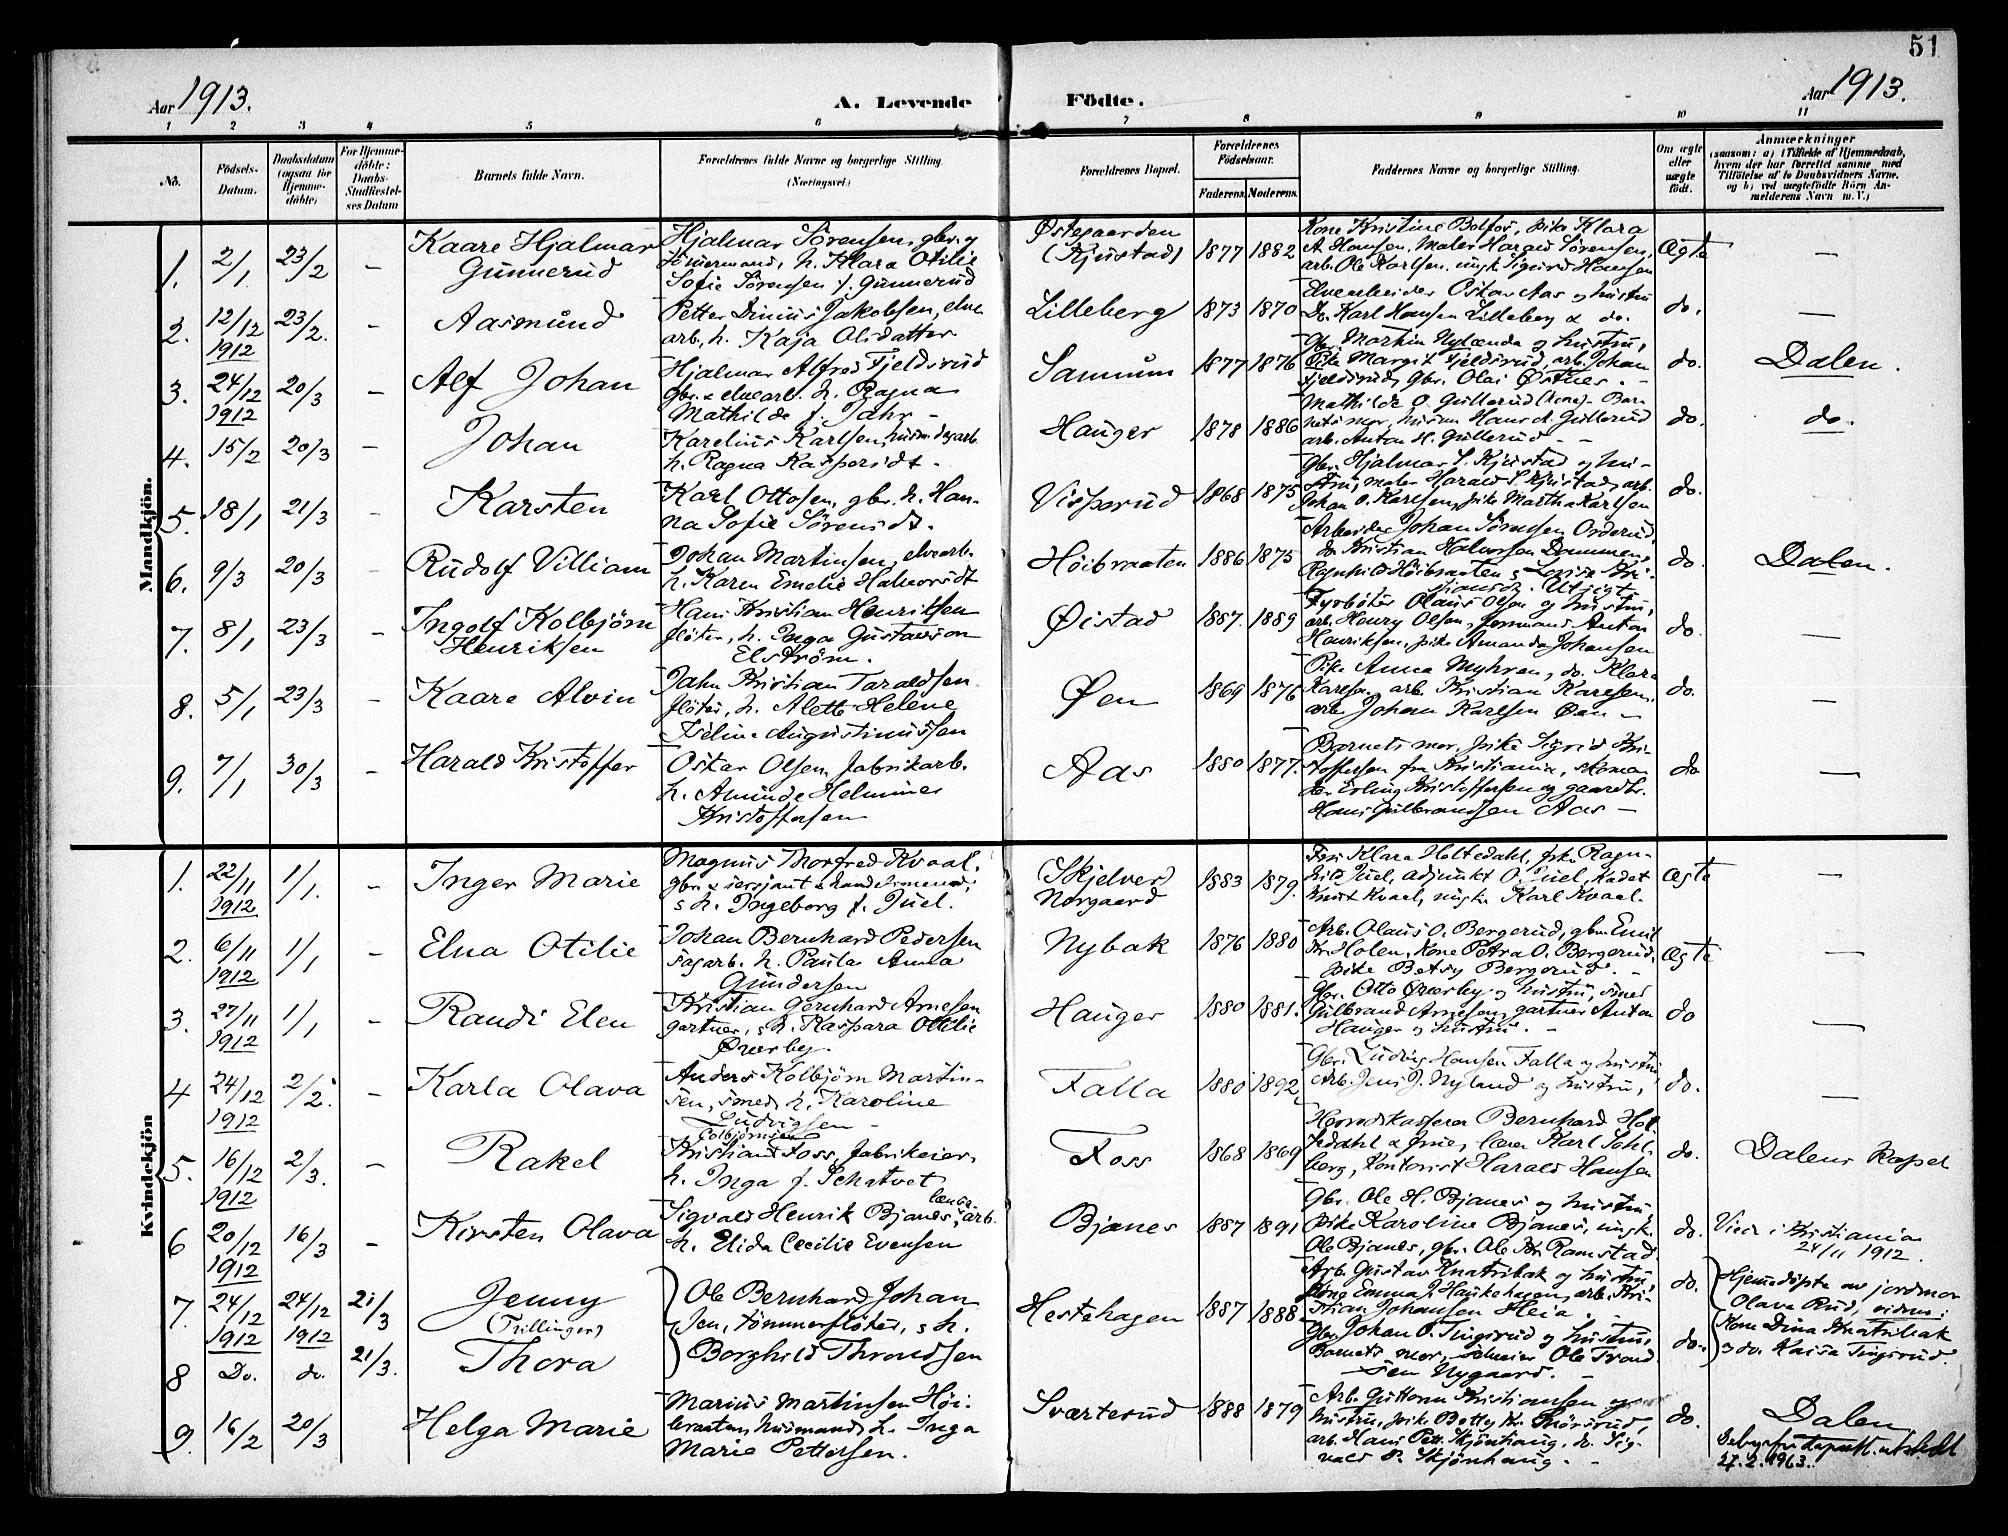 51
Aar 1913.
A. Levende Födte.
Aar 1913.
1 2 3 4 5 6 7 8 9 10 11
No.
Födsels-Datum.
Daabsdatum (ogsaa for Hjemmedöbte)
For Hjemmedöbte: Daabs-Stadfæstelses Datum
Barnets fulde Navn.
Forældrenes fulde Navne og borgerlige Stilling. (Næringsvei.)
Forældrenes Bopæl.
Forældrenes Födselsaar. Faderens. Moderens.
Faddernes Navne og borgerlige Stilling.
Om ægte eller uægte födt.
Anmærkninger (saasom: a) i Tilfælde af Hjemmedaab, hvem der har forrettet samme med Tilföielse af to Daabsvidners Navne, og b) ved uægtefödte Börn Anmelderens Navn m. V.)
Mandkjön.
1. 2/1 23/2 - Kaare Hjalmar Gunnerud
Hjalmar Sörensen, gbr. og tömmermand, h. Klara Otilie Sofie Sörensen f. Gunnerud
Østegaarden (Kjustad) 1877 1882
Kone Kristine Bolfos, pike Klara A. Hansen, Maler Harald Sörensen, arb. Ole Karlsen, ungk. Sigurd Hansen
Ægte —
2. 12/12 1912 23/2. - Aasmund
Petter Dinius Jakobsen, elvearb., h. Kaja Olsdatter
Lilleberg 1873 1870
Elvearbeider Oskar Aas og hustru Do. Karl Hansen Lilleberg & do.
do. —
3. 24/12 1912 20/3 - Alf Johan
Hjalmar Alfred Fjeldsrud gbr. & elvearb. h. Ragna Mathilde f. Jahr -
Sannum 1877 1876
Gbr. Martin Nylænda og hustru, Pike Margit Fjeldsrud, arb. Johan Fjeldsrud, gbr. Olai Østnes. -
do. Dalen.
4. 15/2 20/3 - Johan
Karelius Karlsen, h. Ragna Kaspersdt. -
Hauger 1878 1886
Mathilde O. Gullerud (kone). Barnets mor, husm. Hans A. Gullerud arb. Anton H. Gullerud - -
do. do.
5. 18/1 21/3 - Karsten
Karl Ottosen, gbr. h. Hanna Sofie Sörensdt.
Visperud 1868 1875
Gbr. Hjalmar S. Kjustad og hustru, maler Harald S. Kjustad, arb. Johan O. Karlsen, pike Martha Karlsen
do. -
6. 9/3 20/3 - Rudolf Villiam
Johan Martinsen, elvearb. h. Karen Emelie Halvorsdt
Höibraaten 1886 1875
Arbeider Johan Sörensen Orderud, do. Kristian Halvorsen Dammen, Ragnhild Höibraaten & Lovise Kristiansdt.
do. Dalen.
7. 8/1 23/3 - Ingolf Kolbjörn Henriksen
Hans Kristian Henriksen flöter, h. Inga Gustavson Elström.
Øistad 1887. 1889
Fyrböter Olaus Olsen og hustru, arb. Henry Olsen, formand Anton Henriksen, pike Amanda Johansen
do. —
8. 5/1 23/3 - Kaare Alvin
Jahn Kristian Taraldsen flöter, h. Alette Helene Augustinussen
Øen 1869 1876
Pike Anna Myhren, do. Klara Karlsen, arb. Kristian Karlsen, arb. Johan Karlsen Øen -
do. —
9. 7/1 30/3 - Harald Kristoffer
Oskar Olsen, fabrikarb. h. Amunde Helmine Kristoffersen
Aas 1880 1877.
Barnets mor, pike Sigrid Kristoffersen fra Kristiania, skomaker Erling Kristoffersen og gaardbr. Hans Gulbrandsen Aas -
do —
Kvindekjön
1. 22/11 1912 1/1. - Inger Marie
Magnus Thorfred Kvaal, gbr. & sersjant & handelsmand, & h. Ingeborg f. Juel.
Skjelver Norgaard 1883 1879.
Klara Holtedahl, frk. Ragnhild Juel, adjunkt O. Juel, Kadet Knut Kvaal, ungk. Karl Kvaal.
Ægte —
2. 6/11 1912 1/1 - Elna Otilie
Johan Bernhard Pedersen sagarb. h. Paula Anna Gundersen
Nybak 1876 1880
Arb. Olaus O. Bergerud, gbr. Emil Kr. Holen, kone Petra O. Bergerud, pike Betsy Bergerud. -
Ægte —
3. 27/11 1912 1/1 - Randi Elen
Kristian Gernhard Arnesen gartner, & h. Kaspara Otilie Overby.
Hauger 1880 1881.
Gbr. Otto Overby og hustru, smed Gulbrand Arnesen, gartner Anton Hauger og hustru. -
do —
4 24/12 1912 2/2. - Karla Olava
Anders Kolbjörn Martinsen, smed, h. Karoline Ludvigsen -
Falla 1880 1892
Gbr. Ludvig Hansen Falla og hustru, Arb. Jens J. Nyland og hustru,
do. —
5. 16/12 1912 2/3. - Rakel
Kristian Colbjörnsen Foss, fabrikeier, h. Inga f. Schatvet
Foss 1868 1869
Herredskasserer Bernhard Holtedahl & frue, lærer Karl Dahlberg, Kontorist Harald Hansen
do. Dalens Kapel
6 20/12 1912 16/3 - Kirsten Olava
Sigvald Henrik Bjanes, arb. h. Elida Cecilie Evensen
Bjanes 1887 1891
Gbr. Ole H. Bjanes og hustru, Pike Karoline Bjanes, ungk. Ole Bjanes, gbr. Ole Kr. Ramstad.
do. Viet i Kristiania 24/11 1912.
7. 24/12 1912 24/12 1912 21/3 Jenny (Tvillinger)
8 Do. do. 21/3. Thora
Ole Bernhard Johansen, tömmerflöter, & h. Borghild Throndsen
Hestehagen 1887 1888
Arb. Gustav Knatribak og hustru, Emma J. Haukehagen, arb. Kristian Johansen Heia.
Gbr. Johan O. Tingsrud og hustru, Barnets mor, Ole Trondsen Nygaard. -
do. do.
Hjemmedöpte av jordmor Olava Rud, vidne: Kone Dina Knatribak & do. Kaisa Tingsrud.
9. 16/2 20/3 Helga Marie
Marius Martinsen Höibraaten, husmand, h. Inga Marie Pettersen.
Sværterud 1888 1879
Arb. Guttorm Kristiansen og hustru, pike Betty Kr. Mörsrud, arb. Hans Pett. Skjönhaug, do. Sigvald P. Skjönhaug. -
do. Dalen
27.2.1963.